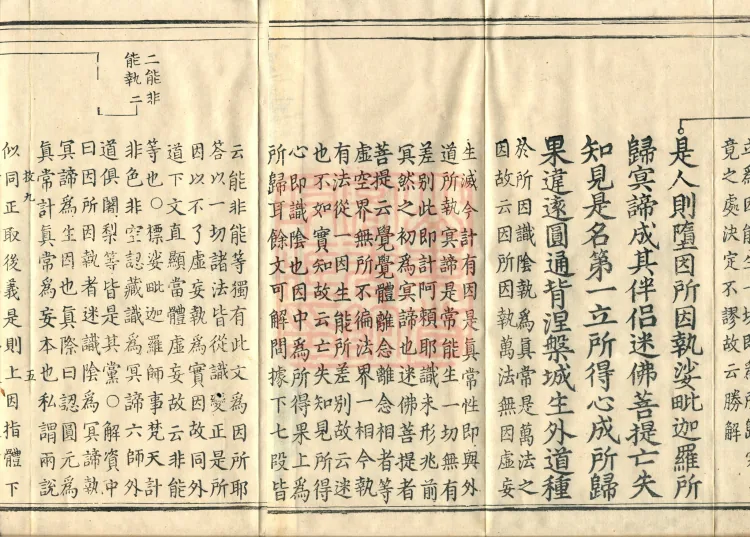 立爲因能生一切即爲所歸究
竟之處決定不謬故云勝解
是人則墮因所因執娑毗迦羅所
歸冥諦成其伴侶迷佛菩提亡失
知見是名第一立所得心成所歸
果違遠圓通背涅槃城生外道種
於所因識陰執爲真常是萬法之
因故云因所因執萬法無因虛妄
生滅今計有因是真常性即與外
道所執冥諦是常能生一切無有
差別此即計阿賴耶識未形兆前
冥然之初爲冥諦也迷佛菩提者
菩提云覺覺體離念離念相者等
虛空界無所不徧法界一相今執
有法從一因生能所差別故云迷
也不如實知故云亡失知見所得
心即識陰也因中爲所得果上爲
所歸耳餘文可解問據下七段皆
二能非
能執二
云能非能等獨有此文爲因所耶
答以一切諸法皆從識變正是所
因以不了虛妄執爲實因故同外
道下文直顯當體虛妄故云非能
等也○標娑毗迦羅師事梵天計
非色非空認藏識爲冥諦六師外
道俱闍梨等皆是其黨○解資中
曰因所因執者迷識陰爲冥諦執
冥諦爲生因也真際曰認圓元爲
真常計真常爲妄本也私謂兩說
扶九
五
似同正取後義是則上因指體下